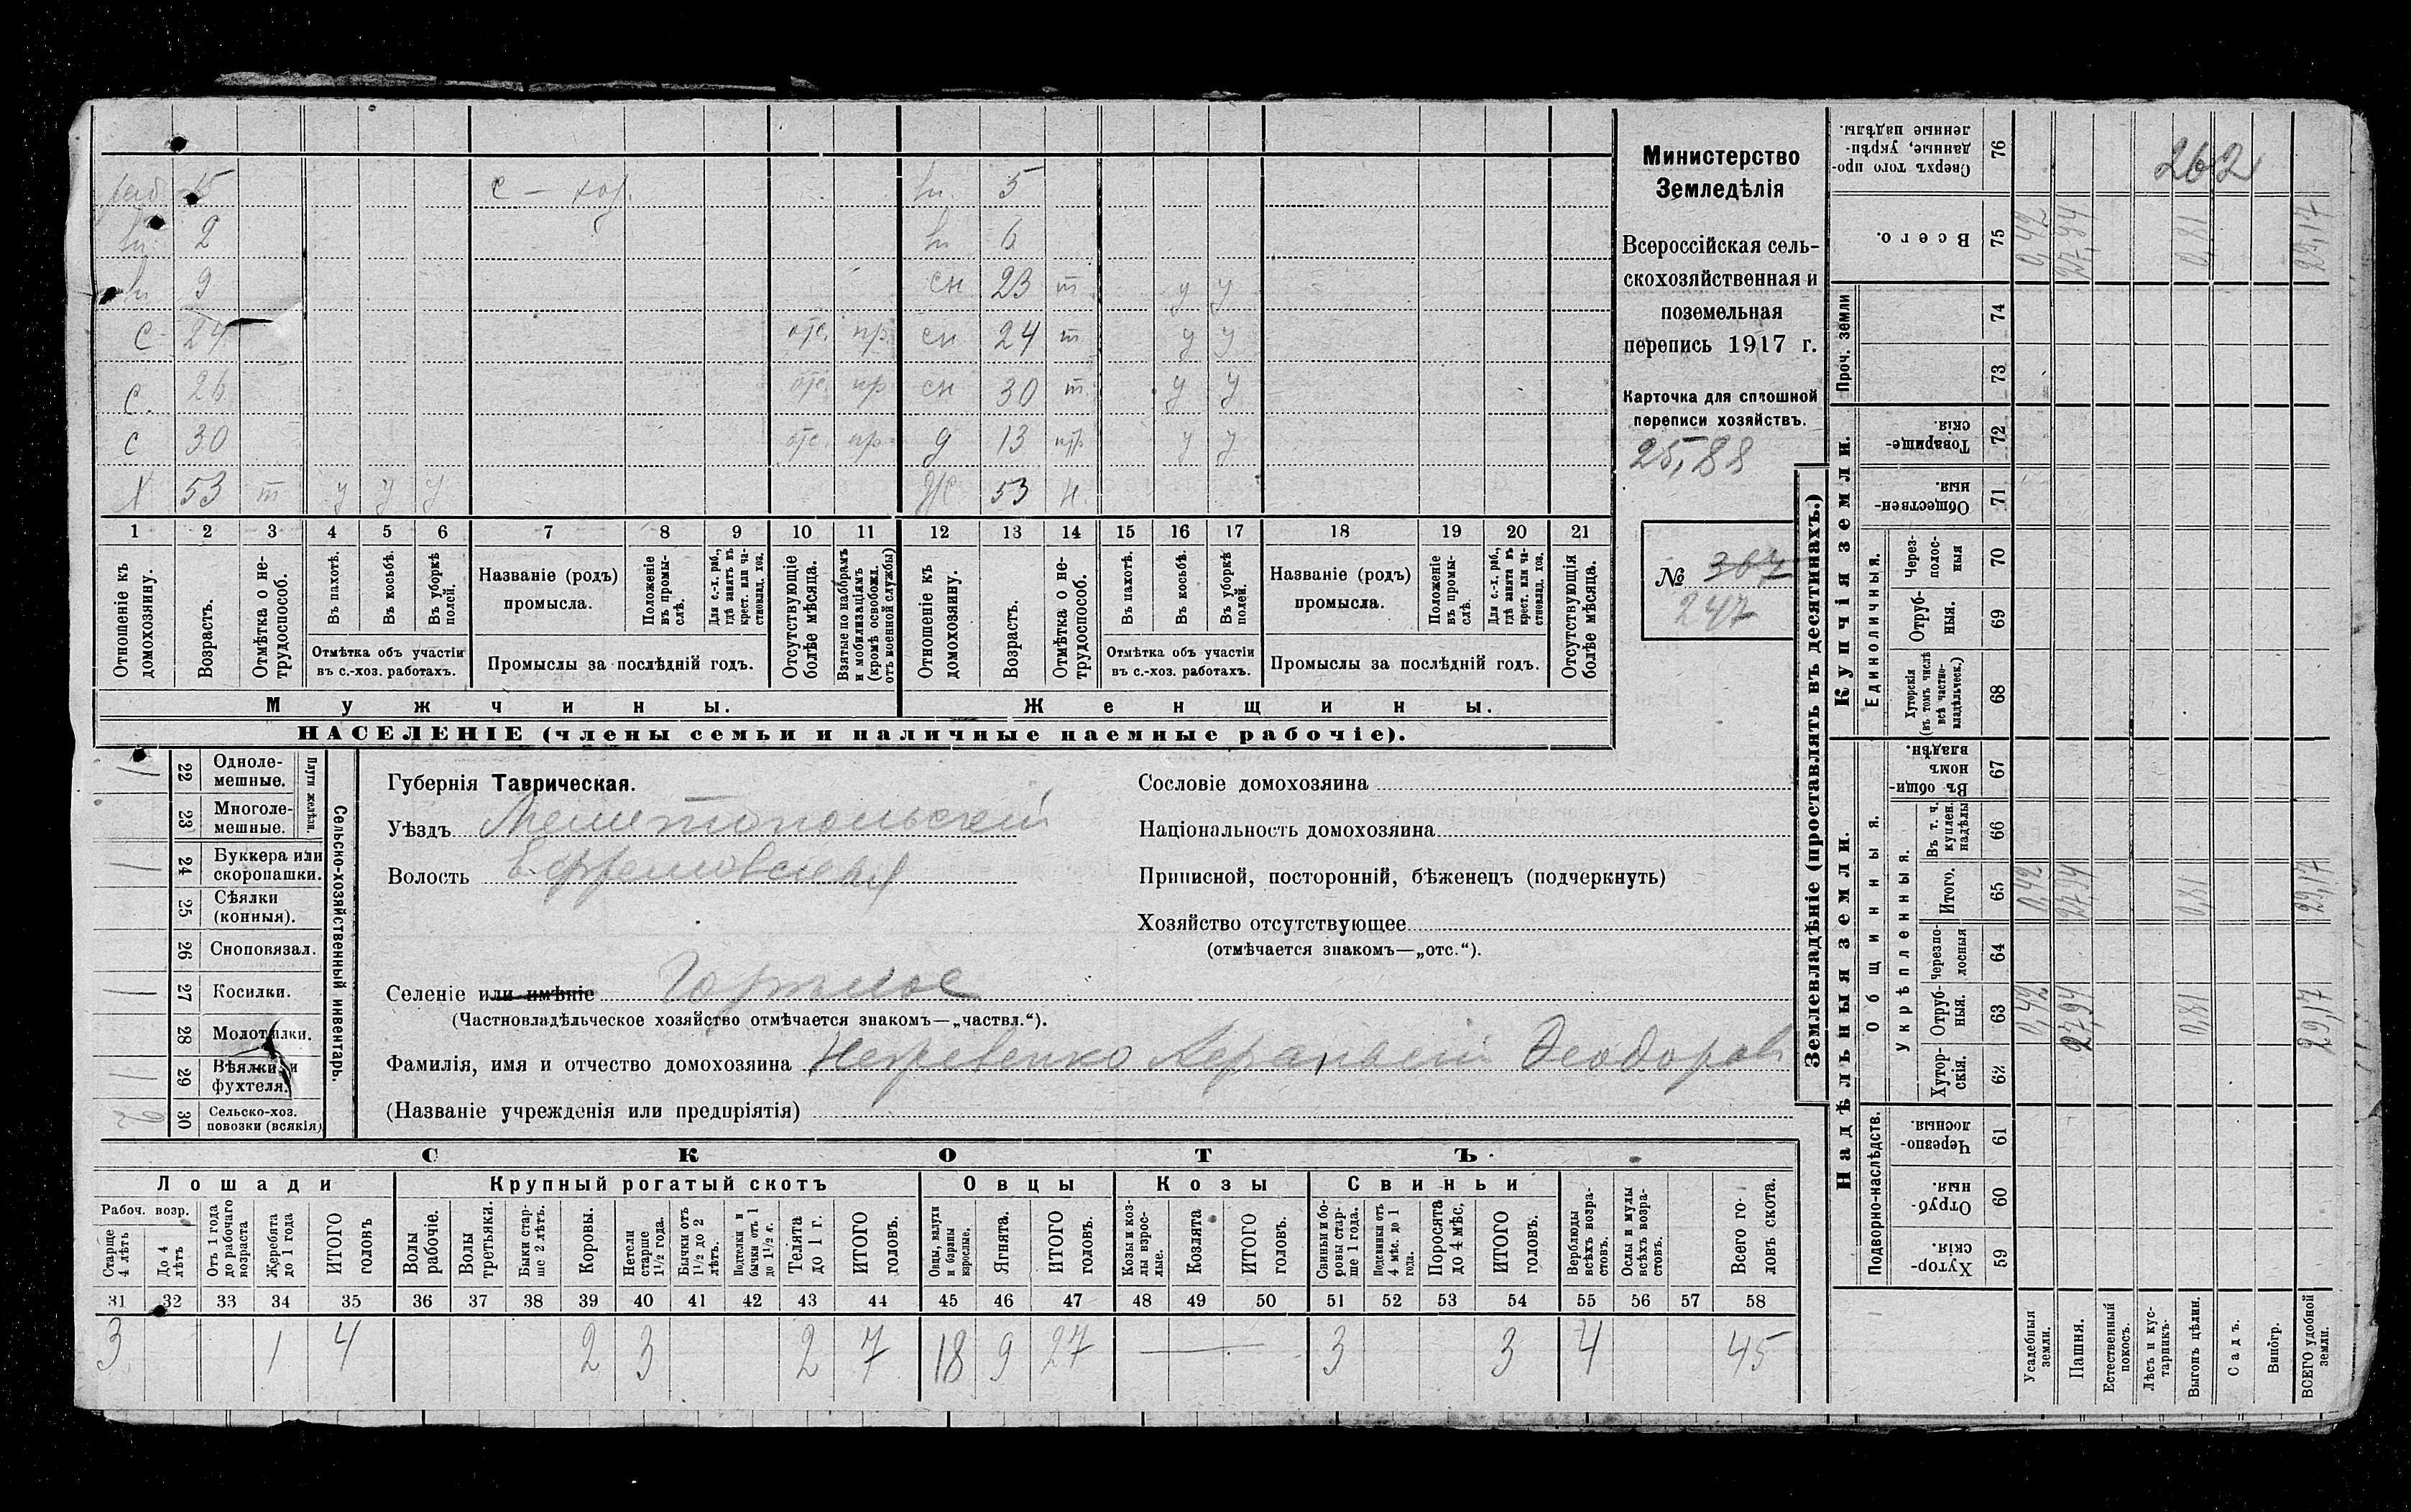 262
Министерство
Земледѣлія
Всероссійская сель-
скохозяйственная и
поземельная
перепись 1917 г.
Карточка для сплошной
переписи хозяйствъ.
25,88
№ 307
247
раб. 15 с — хоз. вн. 5
вн. 2 вн 6
вн 9 сн 23 т у у
с 24 отс. пр. сн 24 т у у
с. 26 отс. пр сн 30 т у у
с 30 отс. пр. д 13 пт у у
Х 53 т у у у Ж 53 н.
1 2 3 4 5 6 7 8 9 10 11 12 13 14 15 16 17 18 19 20 21
Отношеніе къ домохозяину.
Возрастъ.
Отмѣтка о не-трудоспособ.
Въ пахотѣ.
Въ косьбѣ.
Въ уборкѣ полей.
Отмѣтка объ участіи
въ с.-хоз. работахъ.
Названіе (родъ)
промысла.
Положеніе въ промы-слѣ.
Для с.-х. раб., гдѣ занятъ въ крест. или ча-стновлад. хоз.
Промыслы за послѣдній годъ.
Отсутствующіе болѣе мѣсяца.
Взятые по наборамъ и мобилизаціямъ (кромѣ освобожд. отъ военной службы)
Отношеніе къ домохозяину.
Возрастъ.
Отмѣтка о не-трудоспособ.
Въ пахотѣ.
Въ косьбѣ.
Въ уборкѣ полей.
Отмѣтка объ участіи
въ с.-хоз. работахъ.
Названіе (родъ)
промысла.
Положеніе въ промы-слѣ.
Для с.-х. раб., гдѣ занята въ крест. или ча-стновлад. хоз.
Промыслы за послѣдній годъ.
Отсутствующія болѣе мѣсяца.
Мужчины. Женщины.
НАСЕЛЕНІЕ (члены семьи и наличные наемные рабочіе).
Сельско-хозяйственный инвентарь.
Плуги желѣзн.
22 Одноле-мешные. 1
23 Многоле-мешные.
24 Буккера или скоропашки. 1
25 Сѣялки (конныя).
26 Сноповязал.
27 Косилки. 1
28 Молотилки.
29 Вѣялки и фухтеля. 1
30 Сельско-хоз. повозки (всякія) 2
Губернія Таврическая.
Уѣздъ Мелитопольскій
Волость Ефремовская
Селеніе или имѣніе Горѣлое
(Частновладѣльческое хозяйство отмѣчается знакомъ—„частвл.“).
Фамилія, имя и отчество домохозяина Негревенко Феодоров
(Названіе учрежденія или предпріятія)
Сословіе домохозяина
Національность домохозяина
Приписной, посторонній, бѣженецъ (подчеркнуть)
Хозяйство отсутствующее
(отмѣчается знакомъ—„отс.“).
СКОТЪ.
Лошади Крупный рогатый скотъ Овцы Козы Свиньи
Рабоч. возр.
Старше 4 лѣтъ
До 4 лѣтъ
Отъ 1 года до рабочаго возраста
Жеребята до 1 года
ИТОГО головъ
Волы рабочіе.
Волы третьяки.
Быки стар-ше 2 лѣтъ.
Коровы.
Нетели старше 1½ года.
Бычки отъ 1½ до 2 лѣтъ.
Подтелки и бычки отъ 1 до 1½ л.
Телята до 1 г.
ИТОГО головъ.
Овцы, валухи и бараны взрослые.
Ягнята.
ИТОГО головъ.
Козы и коз-лы взрос-лые.
Козлята
ИТОГО головъ.
Свиньи и бо-ровы стар-ше 1 года.
Подсвинки отъ 4 мѣс. до 1 года.
Поросята до 4 мѣс.
ИТОГО головъ.
Верблюды всѣхъ возра-стовъ.
Ослы и мулы всѣхъ возра-стовъ.
Всего го-ловъ скота.
31 32 33 34 35 36 37 38 39 40 41 42 43 44 45 46 47 48 49 50 51 52 53 54 55 56 57 58
3 1 4 2 3 2 7 18 9 27 — 3 3 4 45
Землевладѣніе (проставлять въ десятинахъ.)
Надѣльныя земли. Купчія земли. Проч. земли
Подворно-наслѣдств. Общинныя. Укрѣпленныя. Единоличныя.
Хутор-скія. 59
Отруб-ныя. 60
Черезпо-лосныя 61
Хутор-скія. 62
Отруб-ныя. 63 0,42 27,94 0,81 29,17
Черезпо-лосныя 64
Итого. 65 0,42 27,94 0,81 29,17
Въ т. ч. куплен. надѣлы 66
Въ общин-номъ владѣн. 67
Хуторскія (въ томъ числѣ всѣ частно-владѣльческ.) 68
Отруб-ныя. 69
Через-полос-ныя 70
Обществен-ныя. 71
Товарище-скія. 72
73
74
Всего. 75 0,42 27,94 0,81 29,17
Сверхъ того про-данные, укрѣп-ленные надѣлы. 76
Усадебныя земли.
Пашня.
Естественный покосъ.
Лѣсъ и кус-тарникъ.
Выгонъ цѣлин.
Садъ.
Виногр.
ВСЕГО удобной земли.